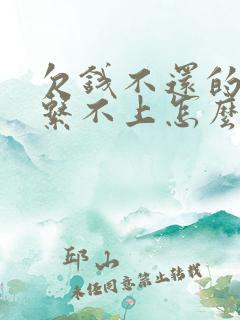 欠錢不還的
繫不上怎麼
邱山
未经同意禁止转载